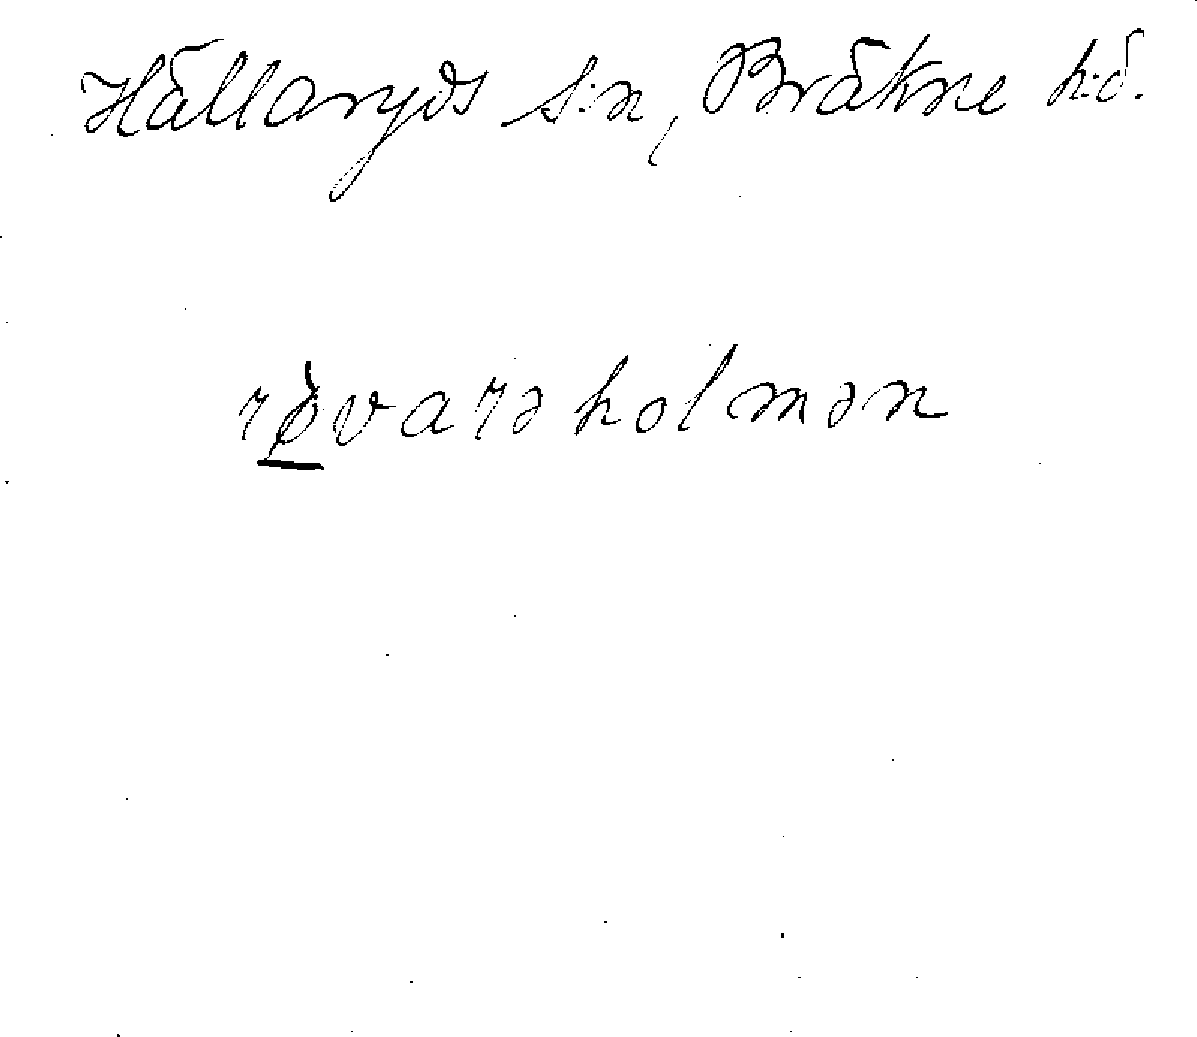 Hällaryds s:n, Bräkne h:d.
rø̀varəholmən